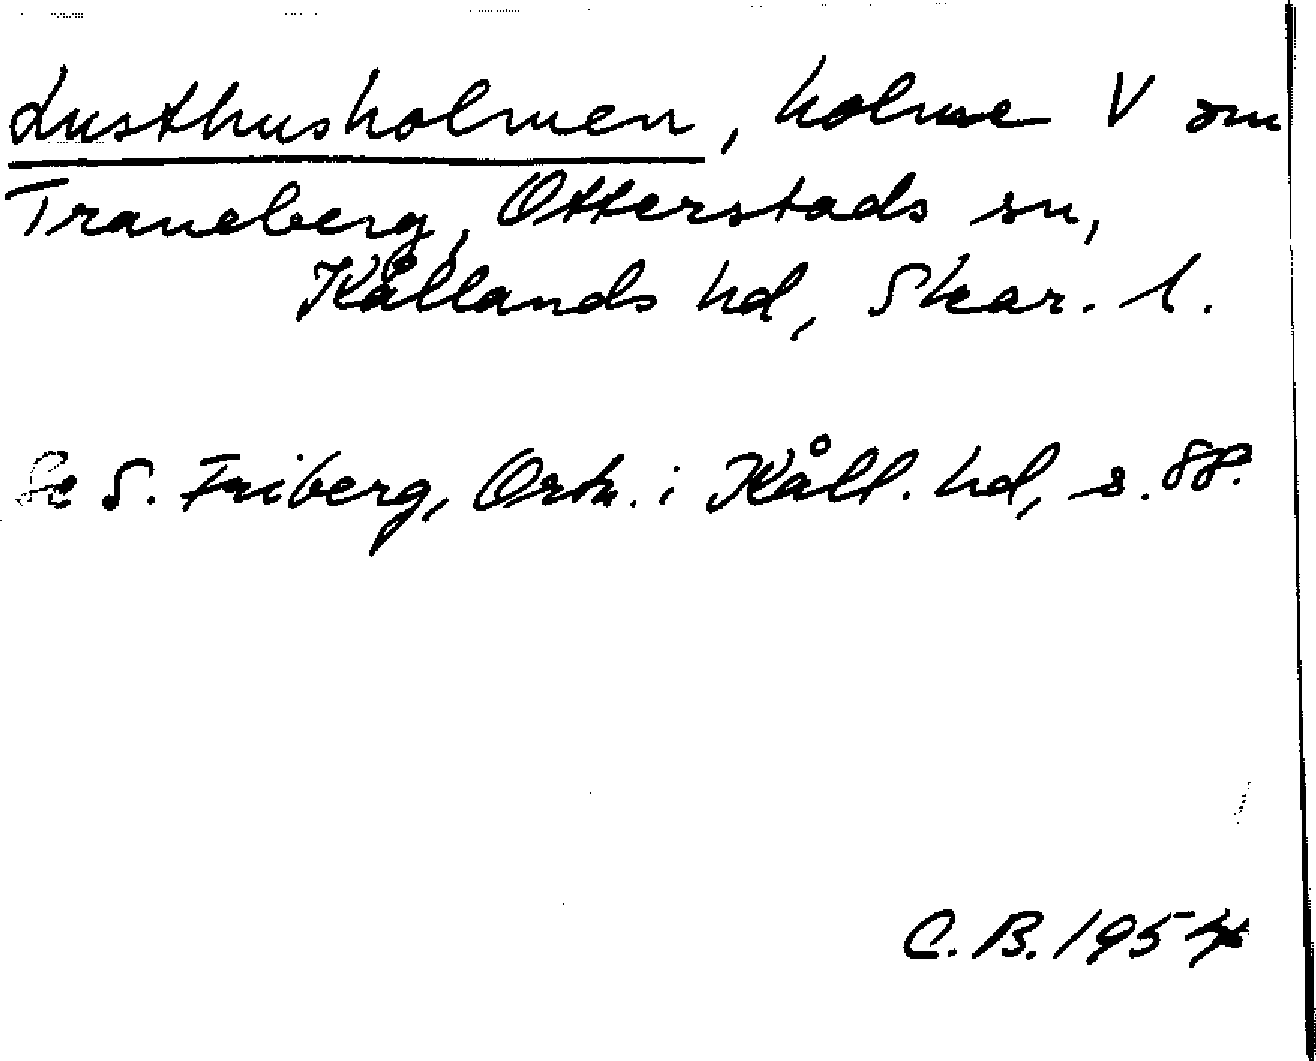 Lusthusholmen, holme V om
Traneberg, Otterstads sn,
Kållands hd, Skar. l.
Se S. Friberg, Ortn. i Kåll. hd, s. 88.
C. B. 1954